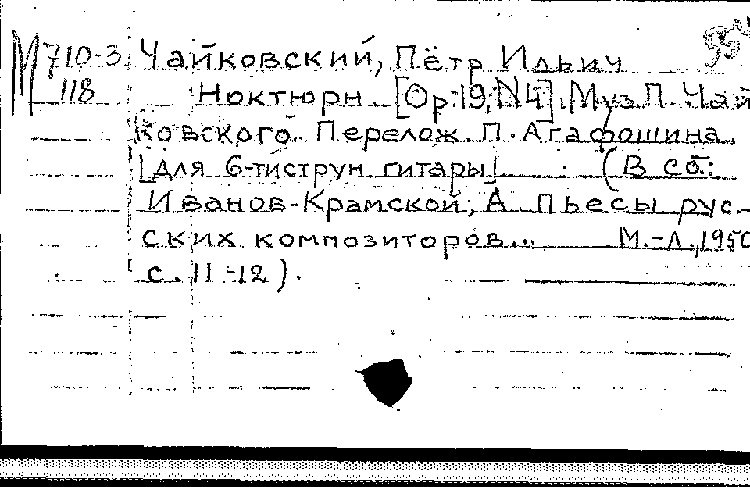 М 710-3 Чайковский, Пётр Ильич
118 Ноктюрн. [Op.19, N4]. Муз. П. Чай
ковского. Перелож. П. Агафошина.
[для 6-тиструн. гитары]. (В сб.:
Иванов-Крамской, А. Пьесы рус-
ских композиторов... М.-Л., 1950
с. 11-12).